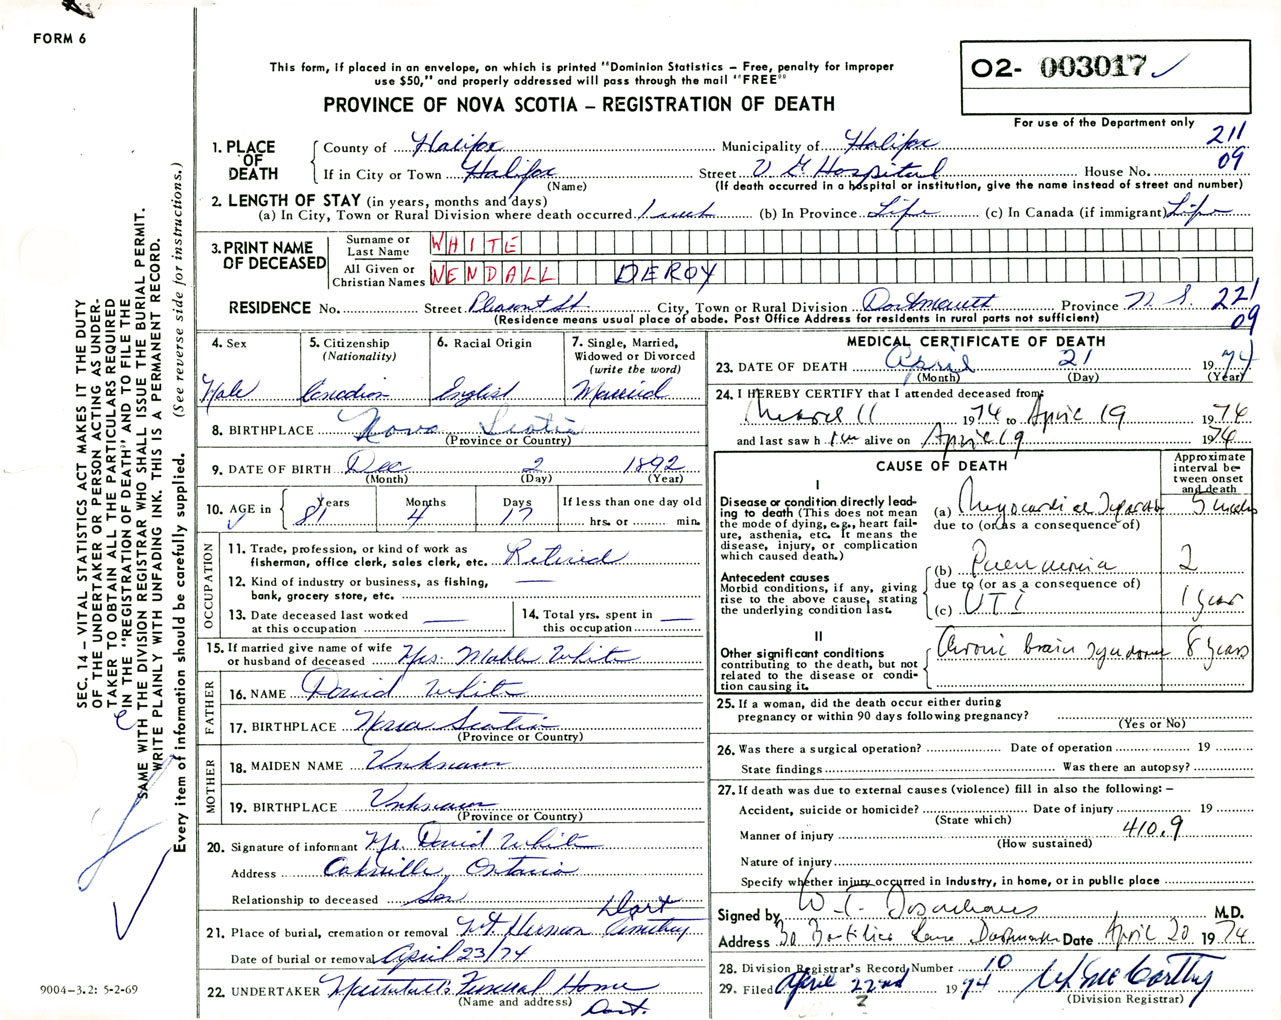 FORM 6
This form, if placed in an envelope, on which is printed "Dominion Statistics – Free, penalty for improper
use $50," and properly addressed will pass through the mail "FREE"
PROVINCE OF NOVA SCOTIA – REGISTRATION OF DEATH
O2- 003017 ✓
For use of the Department only
1. PLACE OF DEATH
County of Halifax Municipality of Halifax 211
If in City or Town Halifax Street V G Hospital House No. 09
(Name) (If death occurred in a hospital or institution, give the name instead of street and number)
2. LENGTH OF STAY (in years, months and days)
(a) In City, Town or Rural Division where death occurred (b) In Province Life (c) In Canada (if immigrant) Life
3. PRINT NAME OF DECEASED
Surname or Last Name WHITE
All Given or Christian Names NENDALL DEROY
RESIDENCE No. Street Pleasant St. City, Town or Rural Division Dartmouth Province N. S. 221
(Residence means usual place of abode. Post Office Address for residents in rural parts not sufficient) 09
4. Sex
Male
5. Citizenship
(Nationality)
Canadian
6. Racial Origin
English
7. Single, Married,
Widowed or Divorced
(write the word)
Married
8. BIRTHPLACE Nova Scotia
(Province or Country)
9. DATE OF BIRTH Dec 2 1892
(Month) (Day) (Year)
10. AGE in ✓
Years 81 Months 4 Days 17
If less than one day old
hrs. or min.
OCCUPATION
11. Trade, profession, or kind of work as
fisherman, office clerk, sales clerk, etc. Retired
12. Kind of industry or business, as fishing,
bank, grocery store, etc. —
13. Date deceased last worked
at this occupation —
14. Total yrs. spent in
this occupation —
15. If married give name of wife
or husband of deceased Mrs. Mable White
FATHER
16. NAME David White
17. BIRTHPLACE Nova Scotia
(Province or Country)
MOTHER
18. MAIDEN NAME Unknown
19. BIRTHPLACE Unknown
(Province or Country)
20. Signature of informant Mr. David White
Address Oakville, Ontario
Relationship to deceased Son
21. Place of burial, cremation or removal Mt Hermon Cemetery Dart
Date of burial or removal April 23/74
22. UNDERTAKER Funeral Home
(Name and address) Dart.
MEDICAL CERTIFICATE OF DEATH
23. DATE OF DEATH April 21 1974
(Month) (Day) (Year)
24. I HEREBY CERTIFY that I attended deceased from
March 11 1974 to April 19 1974
and last saw him alive on April 19 1974
CAUSE OF DEATH
Approximate interval between onset and death
I
Disease or condition directly leading to death (This does not mean
the mode of dying, e.g., heart failure, asthenia, etc. It means the
disease, injury, or complication
which caused death.)
(a) Myocardial 5 weeks
due to (or as a consequence of)
Antecedent causes
Morbid conditions, if any, giving
rise to the above cause, stating
the underlying condition last.
(b) Pneumonia 2
due to (or as a consequence of)
(c) UTI 1 year
II
Other significant conditions
contributing to the death, but not
related to the disease or condition causing it.
Chronic brain syndrome 8 years
25. If a woman, did the death occur either during
pregnancy or within 90 days following pregnancy?
(Yes or No)
26. Was there a surgical operation? Date of operation 19
State findings Was there an autopsy?
27. If death was due to external causes (violence) fill in also the following: –
Accident, suicide or homicide? Date of injury 19
(State which)
Manner of injury 410.9
(How sustained)
Nature of injury
Specify whether injury occurred in industry, in home, or in public place
Signed by M.D.
Address Lane Dartmouth Date April 20 1974
28. Division Registrar's Record Number 10
29. Filed April 22nd 1974
(Division Registrar)
SEC. 14 – VITAL STATISTICS ACT MAKES IT THE DUTY
OF THE UNDERTAKER OR PERSON ACTING AS UNDER-
TAKER TO OBTAIN ALL THE PARTICULARS REQUIRED
IN THE "REGISTRATION OF DEATH" AND TO FILE THE
SAME WITH THE DIVISION REGISTRAR WHO SHALL ISSUE THE BURIAL PERMIT.
WRITE PLAINLY WITH UNFADING INK. THIS IS A PERMANENT RECORD.
Every item of information should be carefully supplied. (See reverse side for instructions.)
9004-3.2: 5-2-69